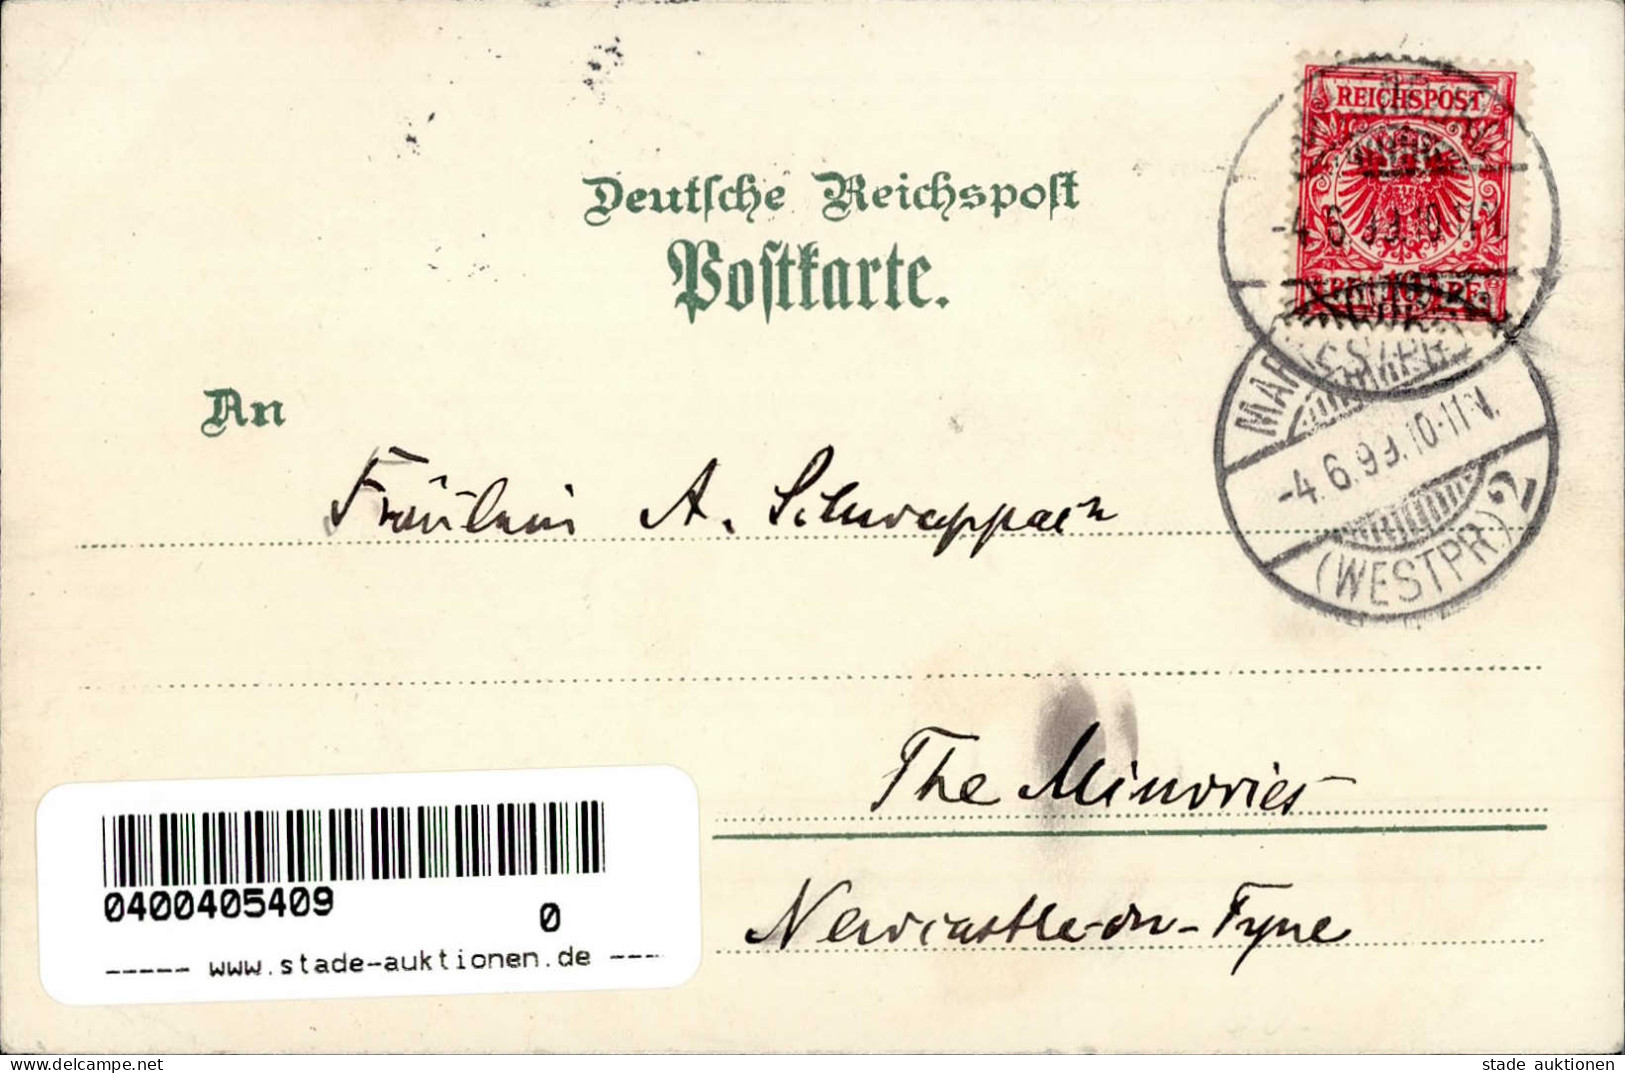 Deutsche Reichspost
Postkarte.
REICHSPOST
-4 6 99.10-11
10 PF
MAR
-4.6.99.10-11V.
(WESTPR) 2
An
Fräulein A.
The Minories
Newcastle-on-Tyne
0400405409
0
----- www.stade-auktionen.de ---
stade auktionen